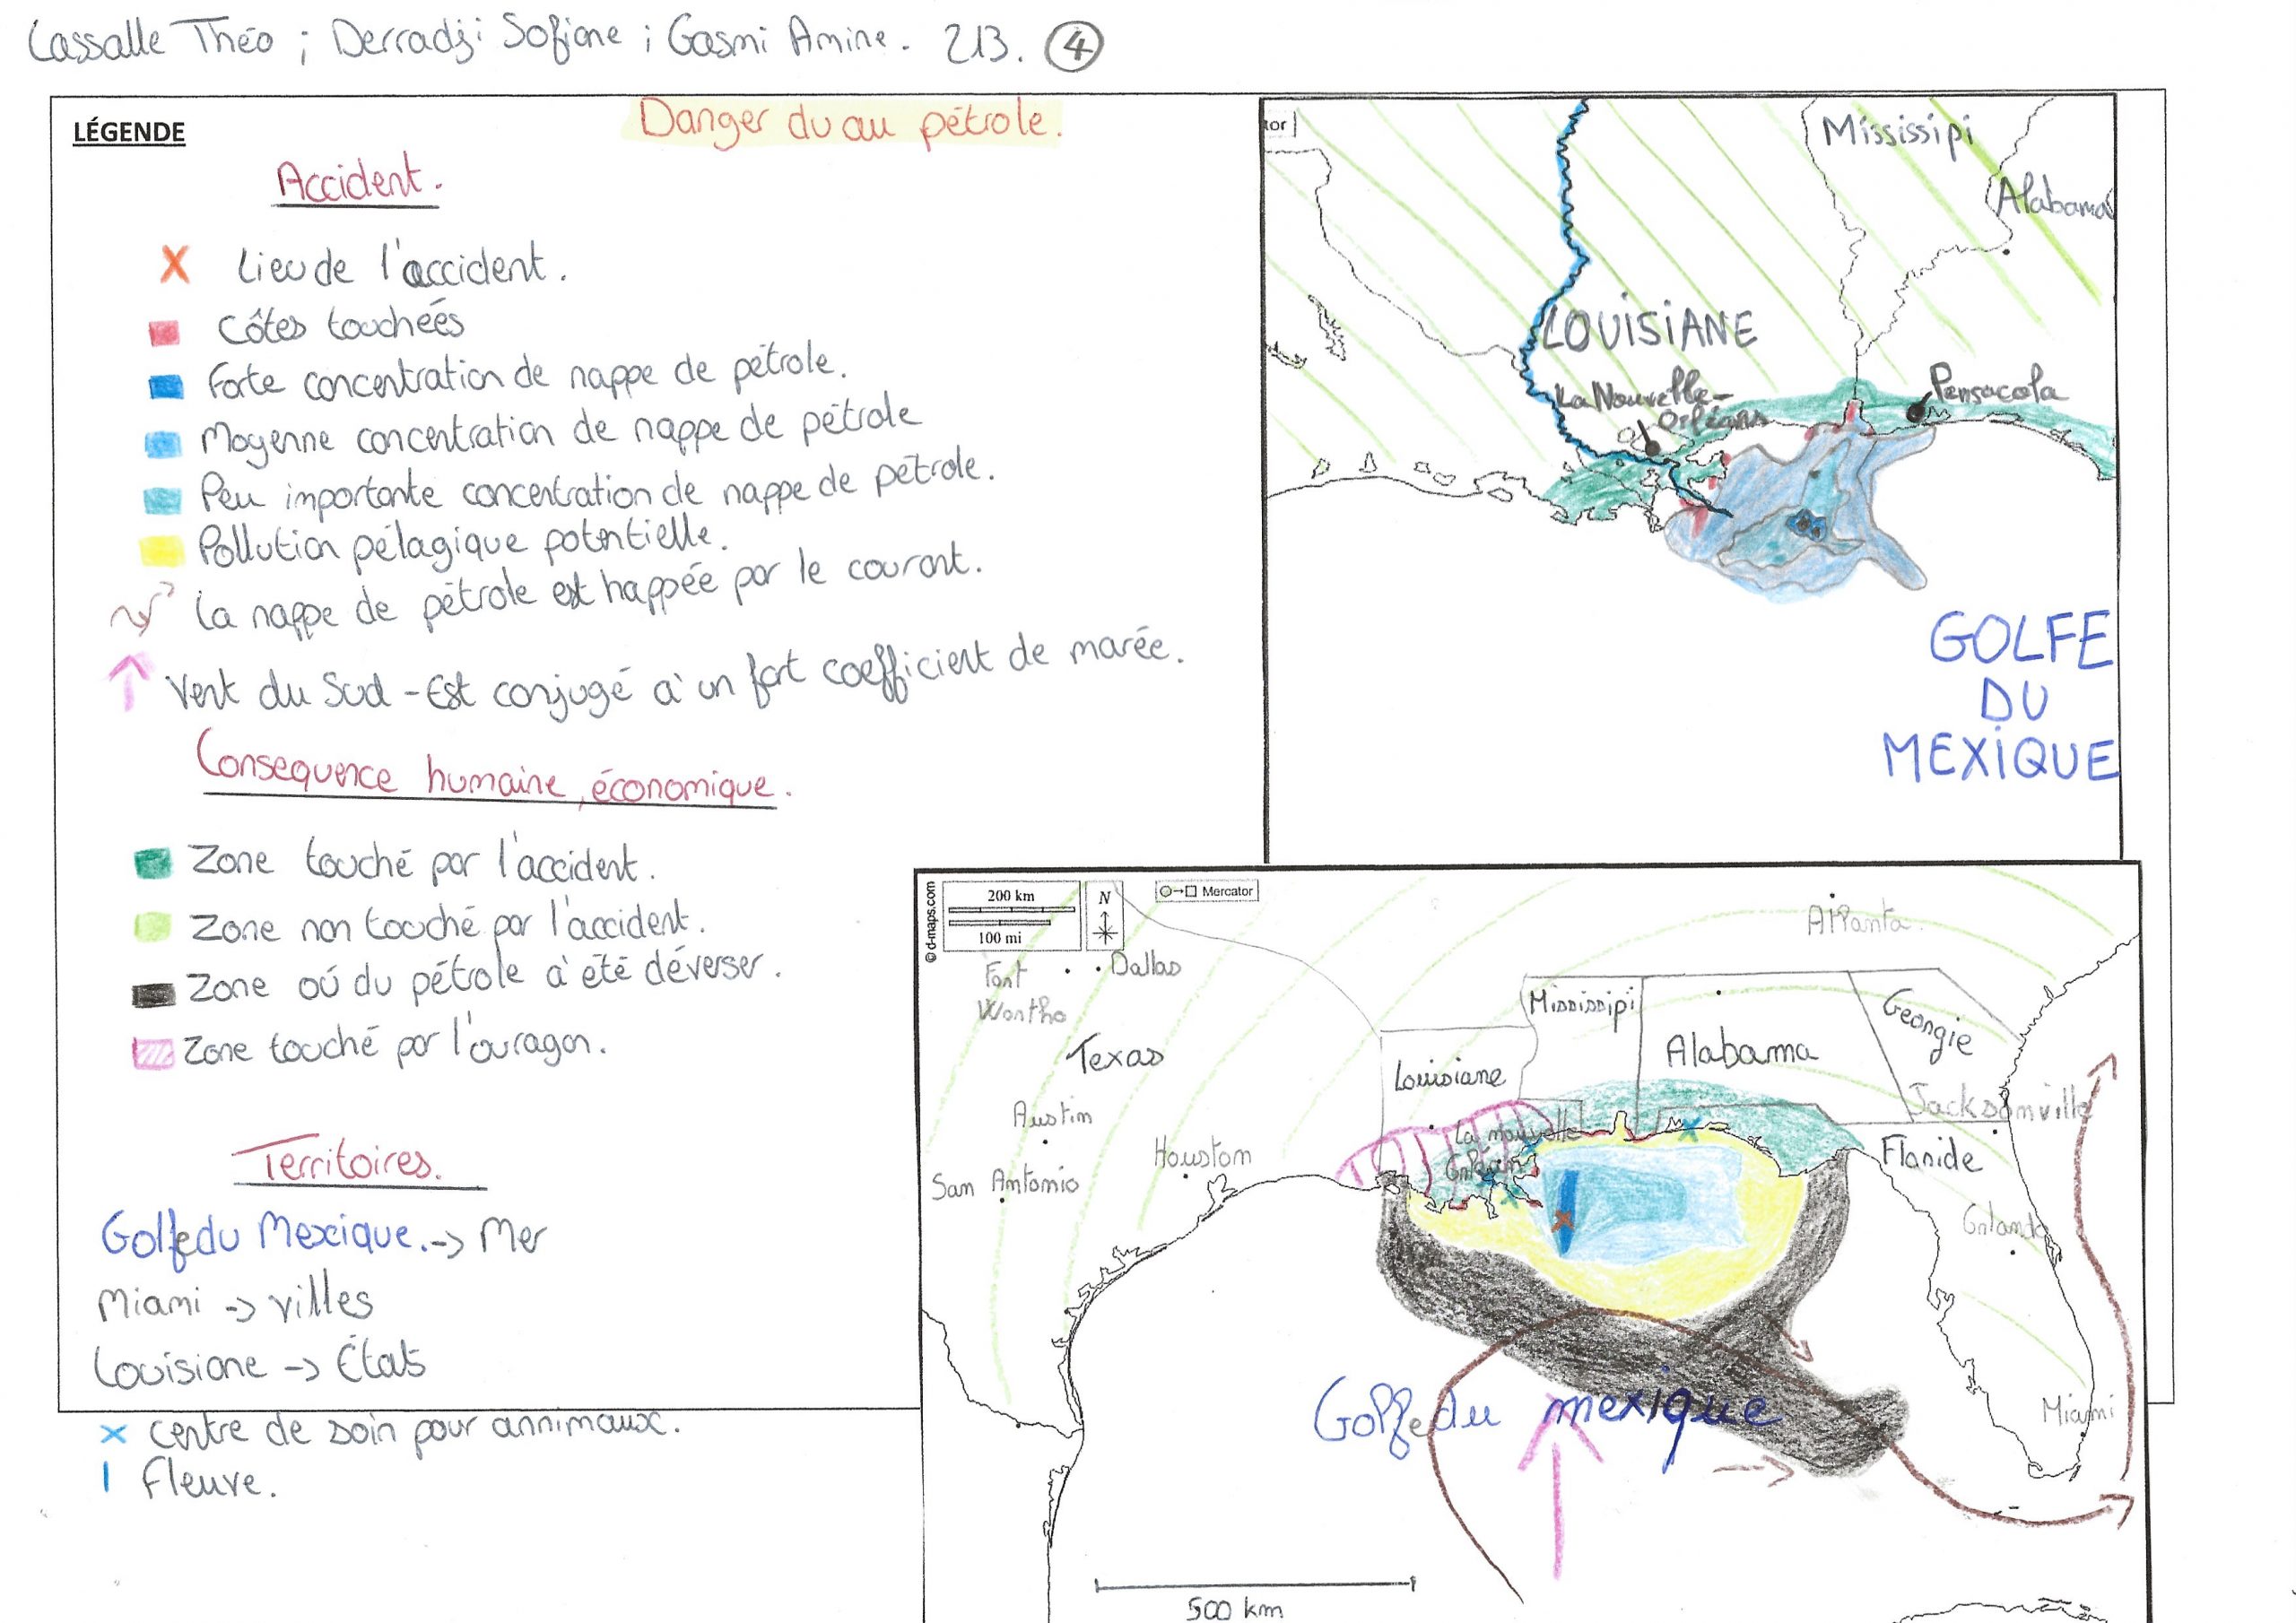 Lassalle Théo ; Derradji Sofiane ; Gasmi Amine. 213. 4
LÉGENDE
Danger du au pétrole.
Accident.
Lieu de l'accident.
Côtes touchéés
Forte concentration de nappe de pétrole.
Moyenne concentration de nappe de pétrole
Peu importante concentration de nappe de pétrole.
Pollution pélagique potentielle.
La nappe de pétrole est happée par le courant.
Vent du Sud-Est conjugé à un fort coefficient de marée.
Consequence humaine, économique.
Zone touché par l'accident.
Zone non touché par l'accident.
Zone où du pétrole à été déverser.
Zone touché par l'ouragan.
Territoires.
Golfe du Mexique. -> Mer
Miami -> villes
Louisiane -> États
x centre de soin pour annimaux.
fleuve.
tor
Mississipi
Alabama
LOUISIANE
La Nouvelle-
Orléans
Pensacola
GOLFE
DU
MEXIQUE
© d-maps.com
200 km
100 mi
N
Mercator
Atlanta
Fort
Wortho
Dallas
Mississipi
Georgie
Texas
Louisiane
Alabama
Jacksonville
Austin
La nouvelle
Orléans
Houston
San Antonio
Floride
Orlando
Golfe du mexique
Miami
500 km